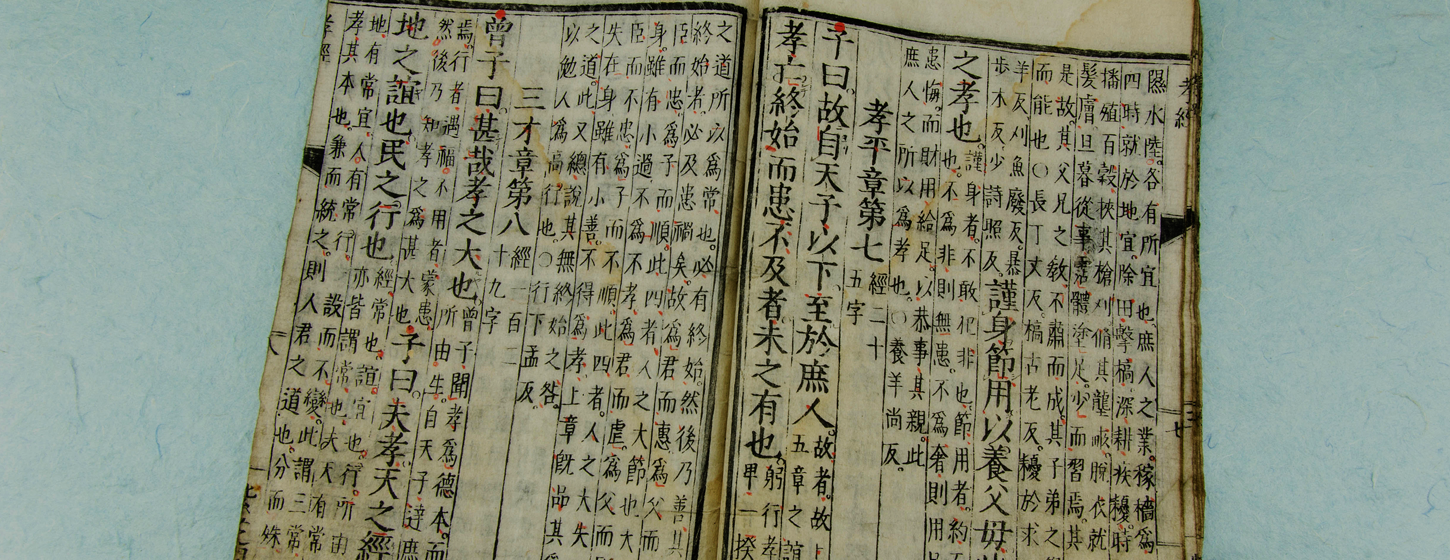 孝經
隰水陸各有所宜也庶人之業稼穡爲
四時就於地宜除田擊槁深耕疾耰時
播殖百穀挾其槍刈脩其壟畝脫衣就
髮膚旦暮從事霑體塗足少而習焉其
是故其父兄之敎不肅而成其子弟之
而能也○長丁丈反槁古老反耰於求
羊反刈魚廢反暴
步木反少詩照反
謹身節用以養父母
之孝也
謹身者不敢犯非也節用者約
也不爲非則無患不爲奢則用
患悔而財用給足以恭事其親此
庶人之所以爲孝也○養羊尚反
孝平章第七
經二十
五字
子曰故自天子以下至於庶人
故者故
五章之誼
孝亡終始而患不及者未之有也
躬行孝
甲一揆
之道所以爲常也必有終始然後乃善其
終始者必及患禍矣故爲君而惠爲父而
臣而忠爲子而順此四者人之大節也大
身雖有小過不爲不孝爲君而虐爲父而
臣而不忠爲子而不順此四者人之大失
失在身雖有小善不得爲孝上章旣品其
之道此又總說其無終始之咎
以勉人爲高行也○行下孟反
三才章第八
經一百二
十九字
曾子曰甚哉孝之大也
曾子聞孝爲德本而
所由生自天子達庶
焉行者遇福不用者蒙患
然後乃知孝之爲甚大也
子曰夫孝天之經
地之誼也民之行也
經常也誼宜也行所由
亦皆謂常也夫天有常
地有常宜人有常行
孝其本也兼而統之則人君之道也分而殊
設而不變此謂三常
孝經